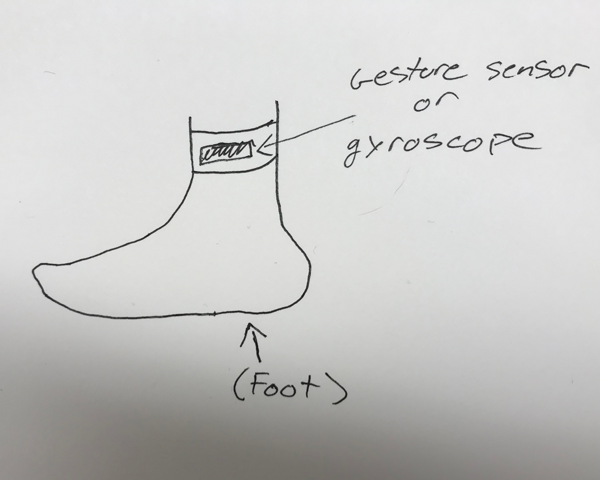 Gesture sensor
or
gyroscope
(Foot)